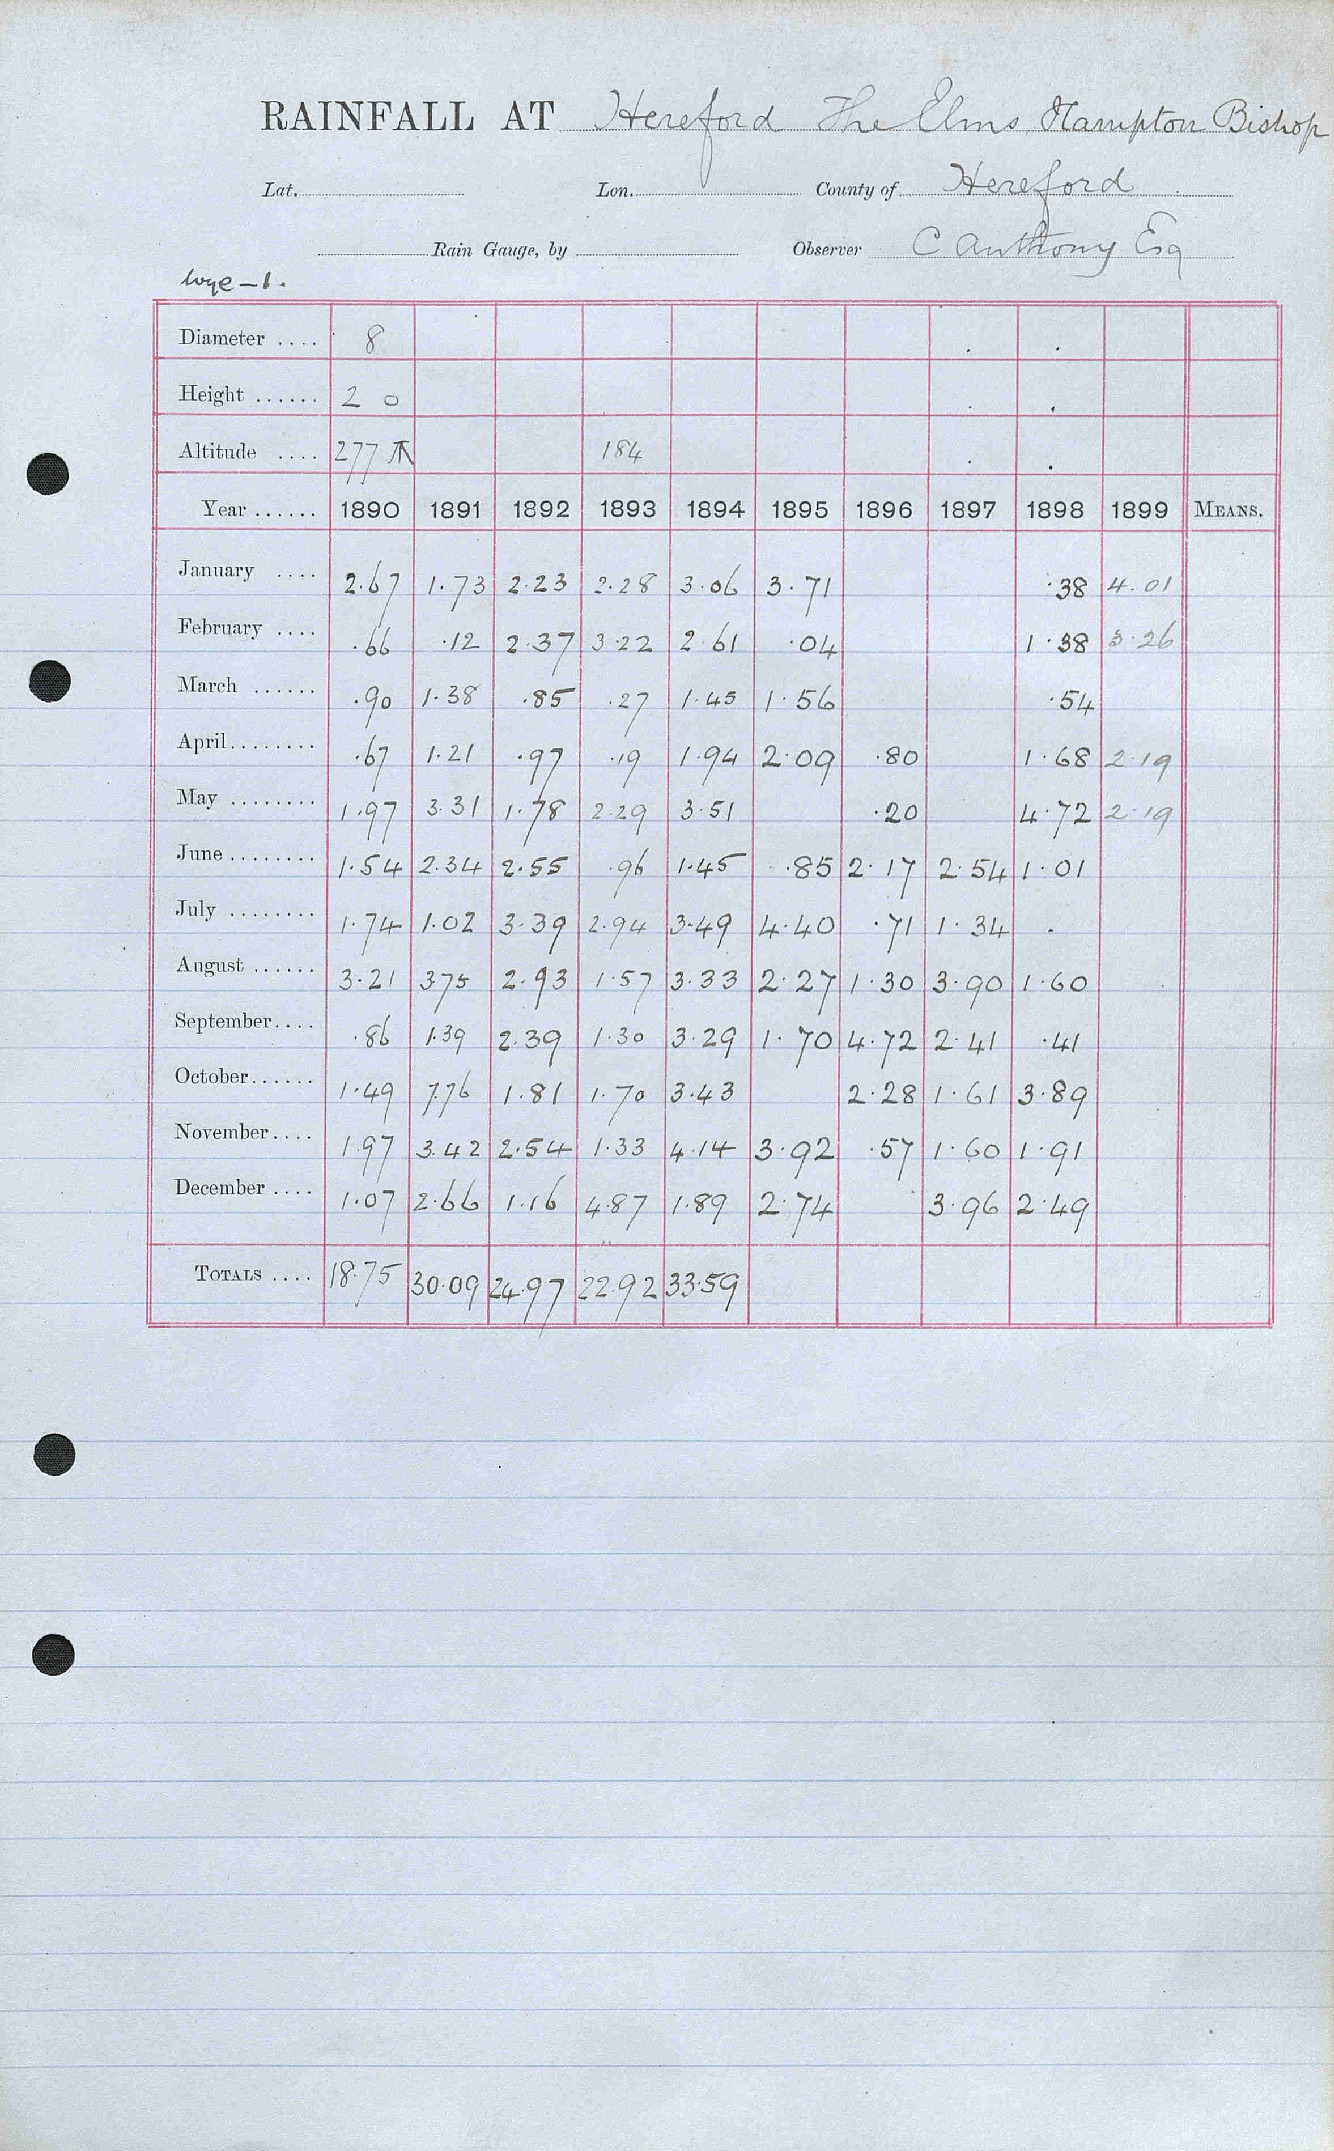 RAINFALL AT Hereford The Elms Hampton Bishop
Lat. Lon. County of Hereford
Rain Gauge, by Observer C Anthony Esq
Wye – 1.
Diameter .... 8
Height ...... 2 0
Altitude .... 277 184
Year ...... 1890 1891 1892 1893 1894 1895 1896 1897 1898 1899 MEANS.
January .... 2.67 1.73 2.23 2.28 3.06 3.71 .38 4.01
February .... .66 .12 2.37 3.22 2.61 .04 1.38 3.26
March ...... .90 1.38 .85 .27 1.45 1.56 .54
April........ .67 1.21 .97 .19 1.94 2.09 .80 1.68 2.19
May ........ 1.97 3.31 1.78 2.29 3.51 .20 4.72 2.19
June ........ 1.54 2.34 2.55 .96 1.45 .85 2.17 2.54 1.01
July ........ 1.74 1.02 3.39 2.94 3.49 4.40 .71 1.34 .
August ...... 3.21 3.75 2.93 1.57 3.33 2.27 1.30 3.90 1.60
September.... .86 1.39 2.39 1.30 3.29 1.70 4.72 2.41 .41
October...... 1.49 7.76 1.81 1.70 3.43 2.28 1.61 3.89
November.... 1.97 3.42 2.54 1.33 4.14 3.92 .57 1.60 1.91
December .... 1.07 2.66 1.16 4.87 1.89 2.74 3.96 2.49
TOTALS .... 18.75 30.09 24.97 22.92 33.59